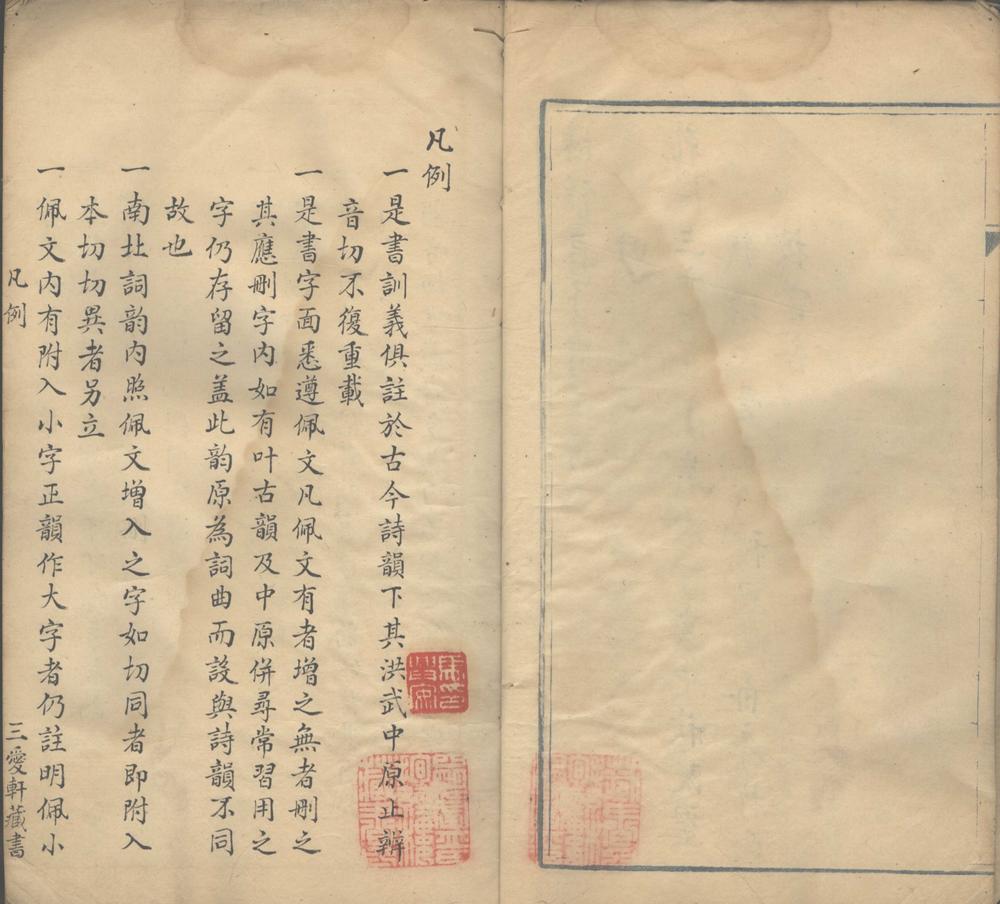 凡例
一是書訓義俱註於古今詩韻下其洪武中原止辨
音切不復重載
一是書字面悉遵佩文凡佩文有者增之無者刪之
其應刪字內如有叶古韻及中原併尋常習用之
字仍存留之盖此韵原為詞曲而設與詩韻不同
故也
一南北詞韵內照佩文增入之字如切同者即附入
本切切異者另立
一佩文內有附入小字正韻作大字者仍註明佩小
凡例
三愛軒藏書